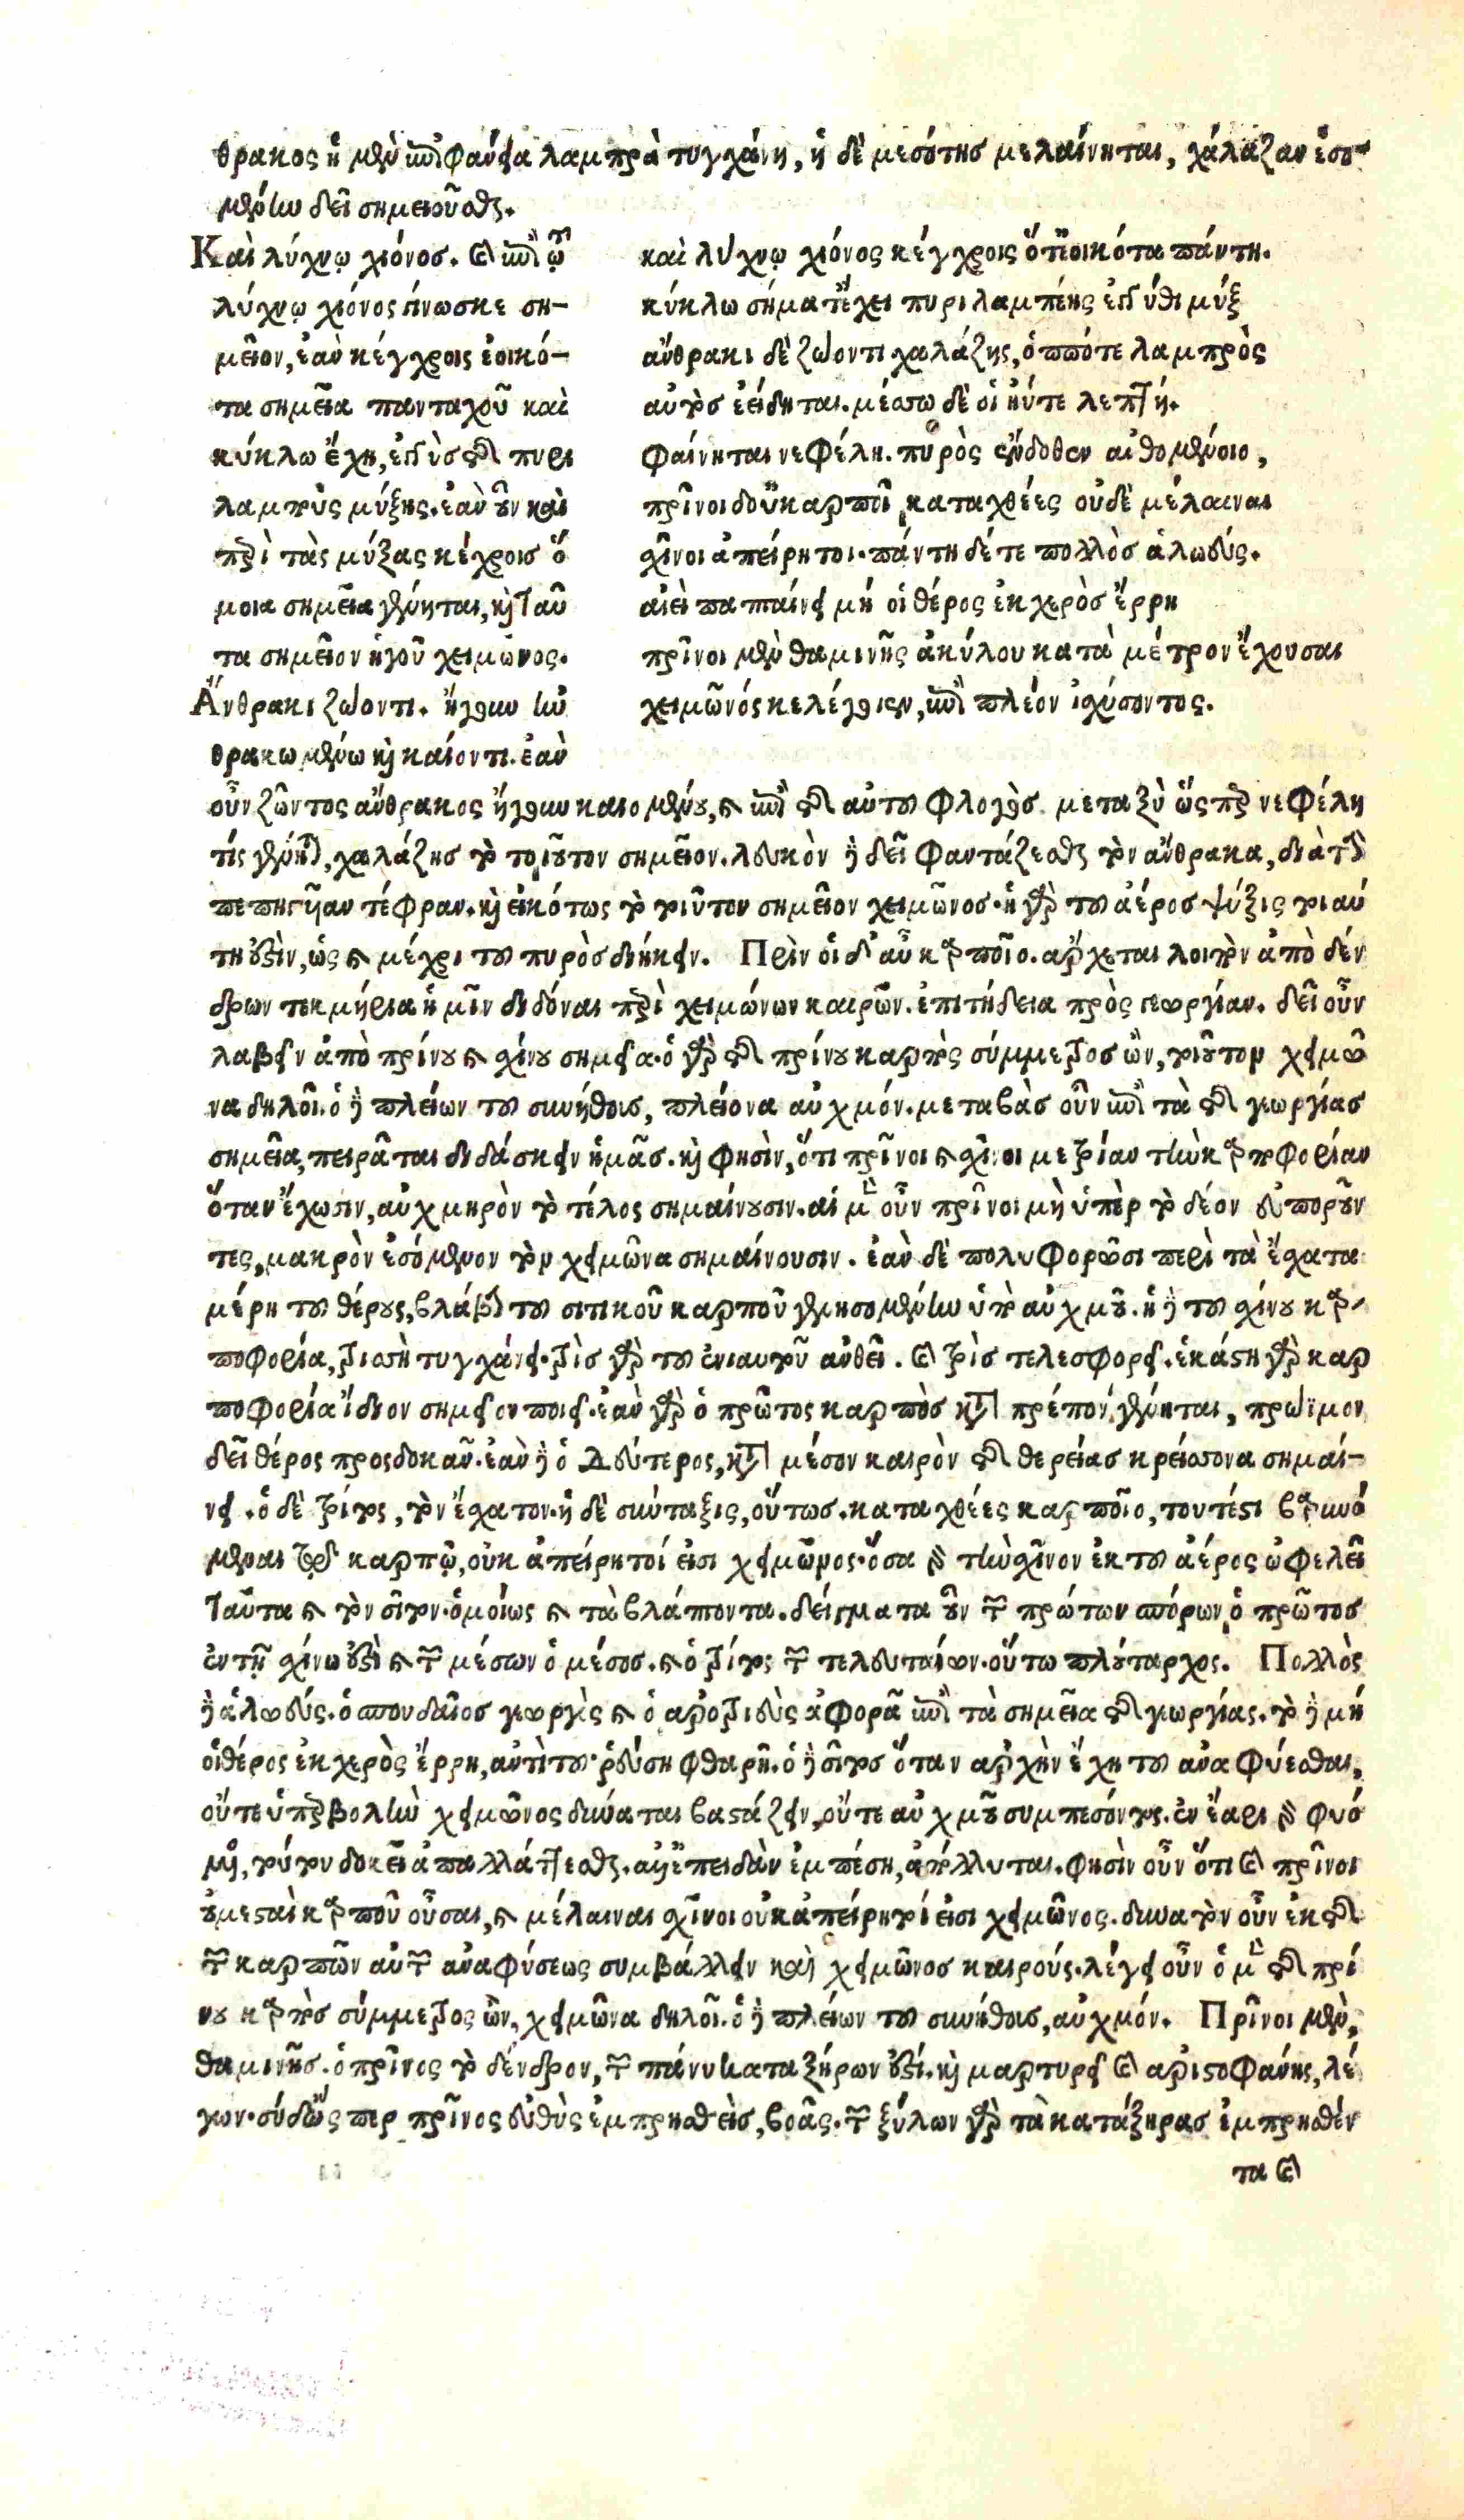 θρακος ἡ μὲν ἐπιφάνεια λαμπρὰ τυγχάνη, ἡ δὲ μεσότης μελαίνηται, χάλαζαν ἐσο-
μένην δεῖ σημειοῦσθαι.
Καὶ λύχνῳ χιόνος. καὶ ἐπὶ τῷ
λύχνῳ χιόνος γίνωσκε ση-
μεῖον, ἐὰν κέγχροις ἐοικό-
τα σημεῖα πανταχοῦ καὶ
κύκλω ἔχη, ἐγγὺσ τῆς πυρι
λαμποῦς μύξης. ἐὰν οὖν καὶ
περὶ τὰς μύξας κέγχροισ ὅ
μοια σημεῖα γένηται, καὶ ταῦ
τα σημεῖον ἡγοῦ χειμῶνος.
Ἄνθρακι ζώοντι. ἤγουν ἠν
θρακωμένω καὶ καίοντι. ἐὰν
καὶ λύχνῳ χιόνος κέγχροις ὅτ' ἐοικότα πάντη.
κύκλω σῆμα τ' ἔχει πυριλαμπέης ἐγγύθι μύξ
ἄνθρακι δὲ ζώοντι χαλάζης, ὁππότε λαμπρὸς
αὐτὸσ ἐείδηται. μέσσω δὲ οἱ ἠύτε λεπτή.
φαίνηται νεφέλη. πυρὸς ἔνδοθεν αἰθομένοιο,
πρῖνοι δ' οὔ καρποῦ καταχθέες οὐδὲ μέλαιναι
σχῖνοι ἀπείρητοι. πάντη δέ τε πολλὸσ ἀλωεύς.
αἰεὶ παπταίνει μή οἱ θέρος ἐκ χερὸσ ἔρρη
πρῖνοι μὲν θαμινῆς ἀκύλου κατὰ μέτρον ἔχουσαι
χειμῶνός κε λέγοιεν, ἐπὶ πλέον ἰσχύσοντος.
οὖν ζῶντος ἄνθρακος ἤγουν καιομένου, καὶ ἐπὶ τῆς αὐτοῦ φλογὸσ μεταξὺ ὥσπερ νεφέλη
τίς γένηται, χαλάζησ τὸ τοιοῦτον σημεῖον. λευκὸν δὲ δεῖ φαντάζεσθαι τὸν ἄνθρακα, διὰ τὸ
πεπηγῆαν τέφραν. καὶ εἰκότως τὸ τοιοῦτον σημεῖον χειμῶνος. ἡ γὰρ τοῦ ἀέροσ ψύξις τοιαύ
τη ἐστὶν, ὡς καὶ μέχρι τοῦ πυρὸσ διήκειν. Πρὶν οἱ δ' αὖ καρποῖο. ἄρχεται λοιπὸν ἀπὸ δέν
δρων τεκμήρια ἡμῖν διδόναι περὶ χειμώνων καιρῶν. ἐπιτήδεια πρὸς γεωργίαν. δεῖ οὖν
λαβεῖν ἀπὸ πρίνου καὶ σχίνου σημεῖα. ὁ γὰρ τῆς πρίνου καρπὸς σύμμετροσ ὢν, τοιοῦτον χειμῶ
να δηλοῖ. ὁ δὲ πλείων τοῦ συνήθουσ, πλείονα αὐχμόν. μεταβὰσ οὖν ἐπὶ τὰ τῆς γεωργίασ
σημεῖα, πειρᾶται διδάσκειν ἡμᾶσ. καὶ φησὶν, ὅτι πρῖνοι καὶ σχῖνοι μετρίαν τὴν καρποφορίαν
ὅταν ἔχωσιν, αὐχμηρὸν τὸ τέλος σημαίνουσιν. αἱ μὲν οὖν πρῖνοι μὴ ὑπὲρ τὸ δέον εὐποροῦν
τες, μακρὸν ἐσόμενον τὸν χειμῶνα σημαίνουσιν. ἐὰν δὲ πολυφορῶσι περὶ τὰ ἔσχατα
μέρη τοῦ θέρους, βλάβην τοῦ σιτικοῦ καρποῦ γενησομένην ὑπὸ αὐχμοῦ. ἡ δὲ τοῦ σχίνου καρ-
ποφορία, τρισσὴ τυγχάνει. τρὶσ γὰρ τοῦ ἐνιαυτοῦ ἀνθεῖ. καὶ τρὶσ τελεσφορεῖ. ἑκάστη γὰρ καρ
ποφορία ἴδιον σημεῖον ποιεῖ. ἐὰν γὰρ ὁ πρῶτος καρπὸσ κατὰ πρέπον γένηται, πρώϊμον
δεῖ θέρος προςδοκᾶν. ἐὰν δὲ ὁ δεύτερος, κατὰ μέσον καιρὸν τῆς θερείας κρείσσονα σημαί-
νει. ὁ δὲ τρίτος, τὸν ἔσχατον. ἡ δὲ σύνταξις, οὕτως. καταχθέες καρποῖο, τουτέστι βαρυνό
μεναι τῷ καρπῷ, οὐκ ἀπείρητοί εἰσι χειμῶνος. ὅσα δὲ τὴν σχῖνον ἐκ τοῦ ἀέρος ὠφελεῖ
ταῦτα καὶ τὸν σῖτον. ὁμοίως καὶ τὰ βλάπτοντα. δείγματα οὖν τῶν πρώτων σπόρων, ὁ πρῶτοσ
ἐν τῇ σχίνω ἐστὶ καὶ τῶν μέσων ὁ μέσος. καὶ ὁ τρίτος τῶν τελευταίων. οὕτω πλούταρχος. Πολλὸς
δὲ ἀλωεύς. ὁ σπουδαῖοσ γεωργὸς καὶ ὁ ἀροτριεὺς ἀφορᾶ ἐπὶ τὰ σημεῖα τῆς γεωργίας. τὸ δὲ μή
οἱ θέρος ἐκ χερὸς ἔρρη, ἀντὶ τοῦ ῥεύση φθαρῆ. ὁ δὲ σῖτοσ ὅταν ἀρχὴν ἔχη τοῦ ἀναφύεσθαι,
οὔτε ὑπερβολὴν χειμῶνος δύναται βαστάζειν, οὔτε αὐχμοῦ συμπεσόντος. ἐν ἔαρι δὲ φυό
μενος, τούτου δοκεῖ ἀπαλλάττεσθαι. αὐτὴ ἐπειδὰν ἐμπέση, ἀπόλλυται. φησὶν οὖν ὅτι καὶ πρῖνοι
οὐ μεσταὶ καρποῦ οὖσαι, καὶ μέλαιναι σχῖνοι οὐκ ἀπείρητοί εἰσι χειμῶνος. δυνατὸν οὖν ἐκ τῆς
τῶν καρπῶν αὐτῶν ἀναφύσεως συμβάλλειν καὶ χειμῶνοσ καιρούς. λέγει οὖν ὁ μὲν τῆς πρί
νου καρπὸσ σύμμετρος ὢν, χειμῶνα δηλοῖ. ὁ δὲ πλείων τοῦ συνήθουσ, αὐχμόν. Πρῖνοι μὲν,
θαμινῆσ. ὁ πρῖνος τὸ δένδρον, τῶν πάνυ καταξήρων ἐστί. καὶ μαρτυρεῖ καὶ ἀριστοφάνης, λέ
γων. σὺ δ' ὥς περ πρῖνος εὐθὺς ἐμπρησθεὶσ, βοᾶς. τῶν ξύλων γὰρ τὰ κατάξηρασ ἐμπρησθέν
τα καὶ